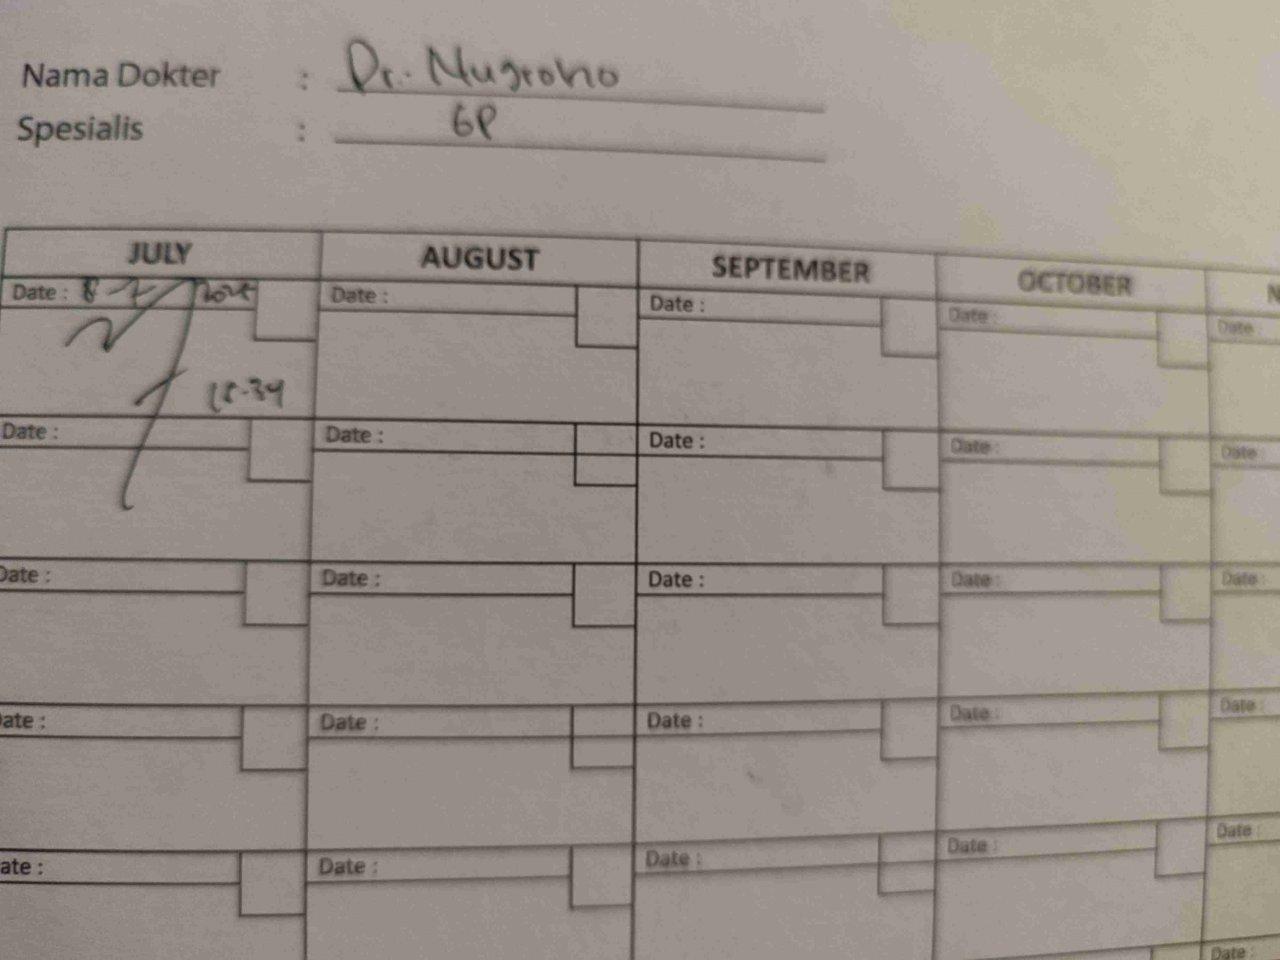 Nama Dokter : Dr. Nugroho
Spesialis : GP
JULY AUGUST SEPTEMBER OCTOBER
Date : 8-7 Date : Date : Date : Date :
Date : Date : Date : Date : Date :
Date : Date : Date : Date : Date :
ate : Date : Date : Date : Date :
ate : Date : Date : Date : Date :
Date :